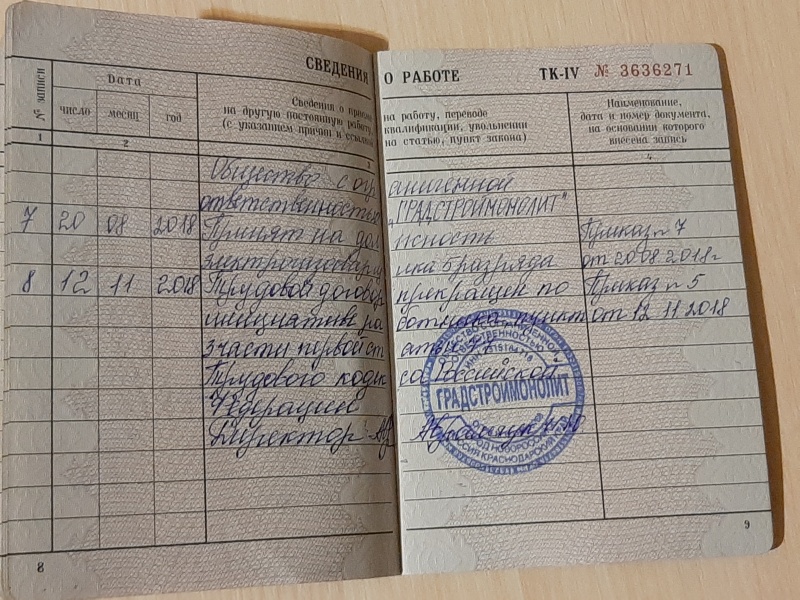 СВЕДЕНИЯ О РАБОТЕ ТК-IV № 3636271
№ записи
Дата
число месяц год
Сведения о приеме на работу, переводе
на другую постоянную работу, квалификации, увольнении
(с указанием причин и ссылкой на статью, пункт закона)
Наименование,
дата и номер документа,
на основании которого
внесена запись
1 2 3 4
Общество с ограниченной
ответственностью "ГРАДСТРОЙМОНОЛИТ"
7 20 08 2018 Принят на должность Приказ № 7
электросварщика 5 разряда от 20 08 2018 г
8 12 11 2018 Трудовой договор прекращен по Приказ № 5
инициативе работника пункт от 12 11 2018
3 части первой статьи
Трудового кодекса Российской
Федерации
Директор
ГРАДСТРОЙМОНОЛИТ
8
9